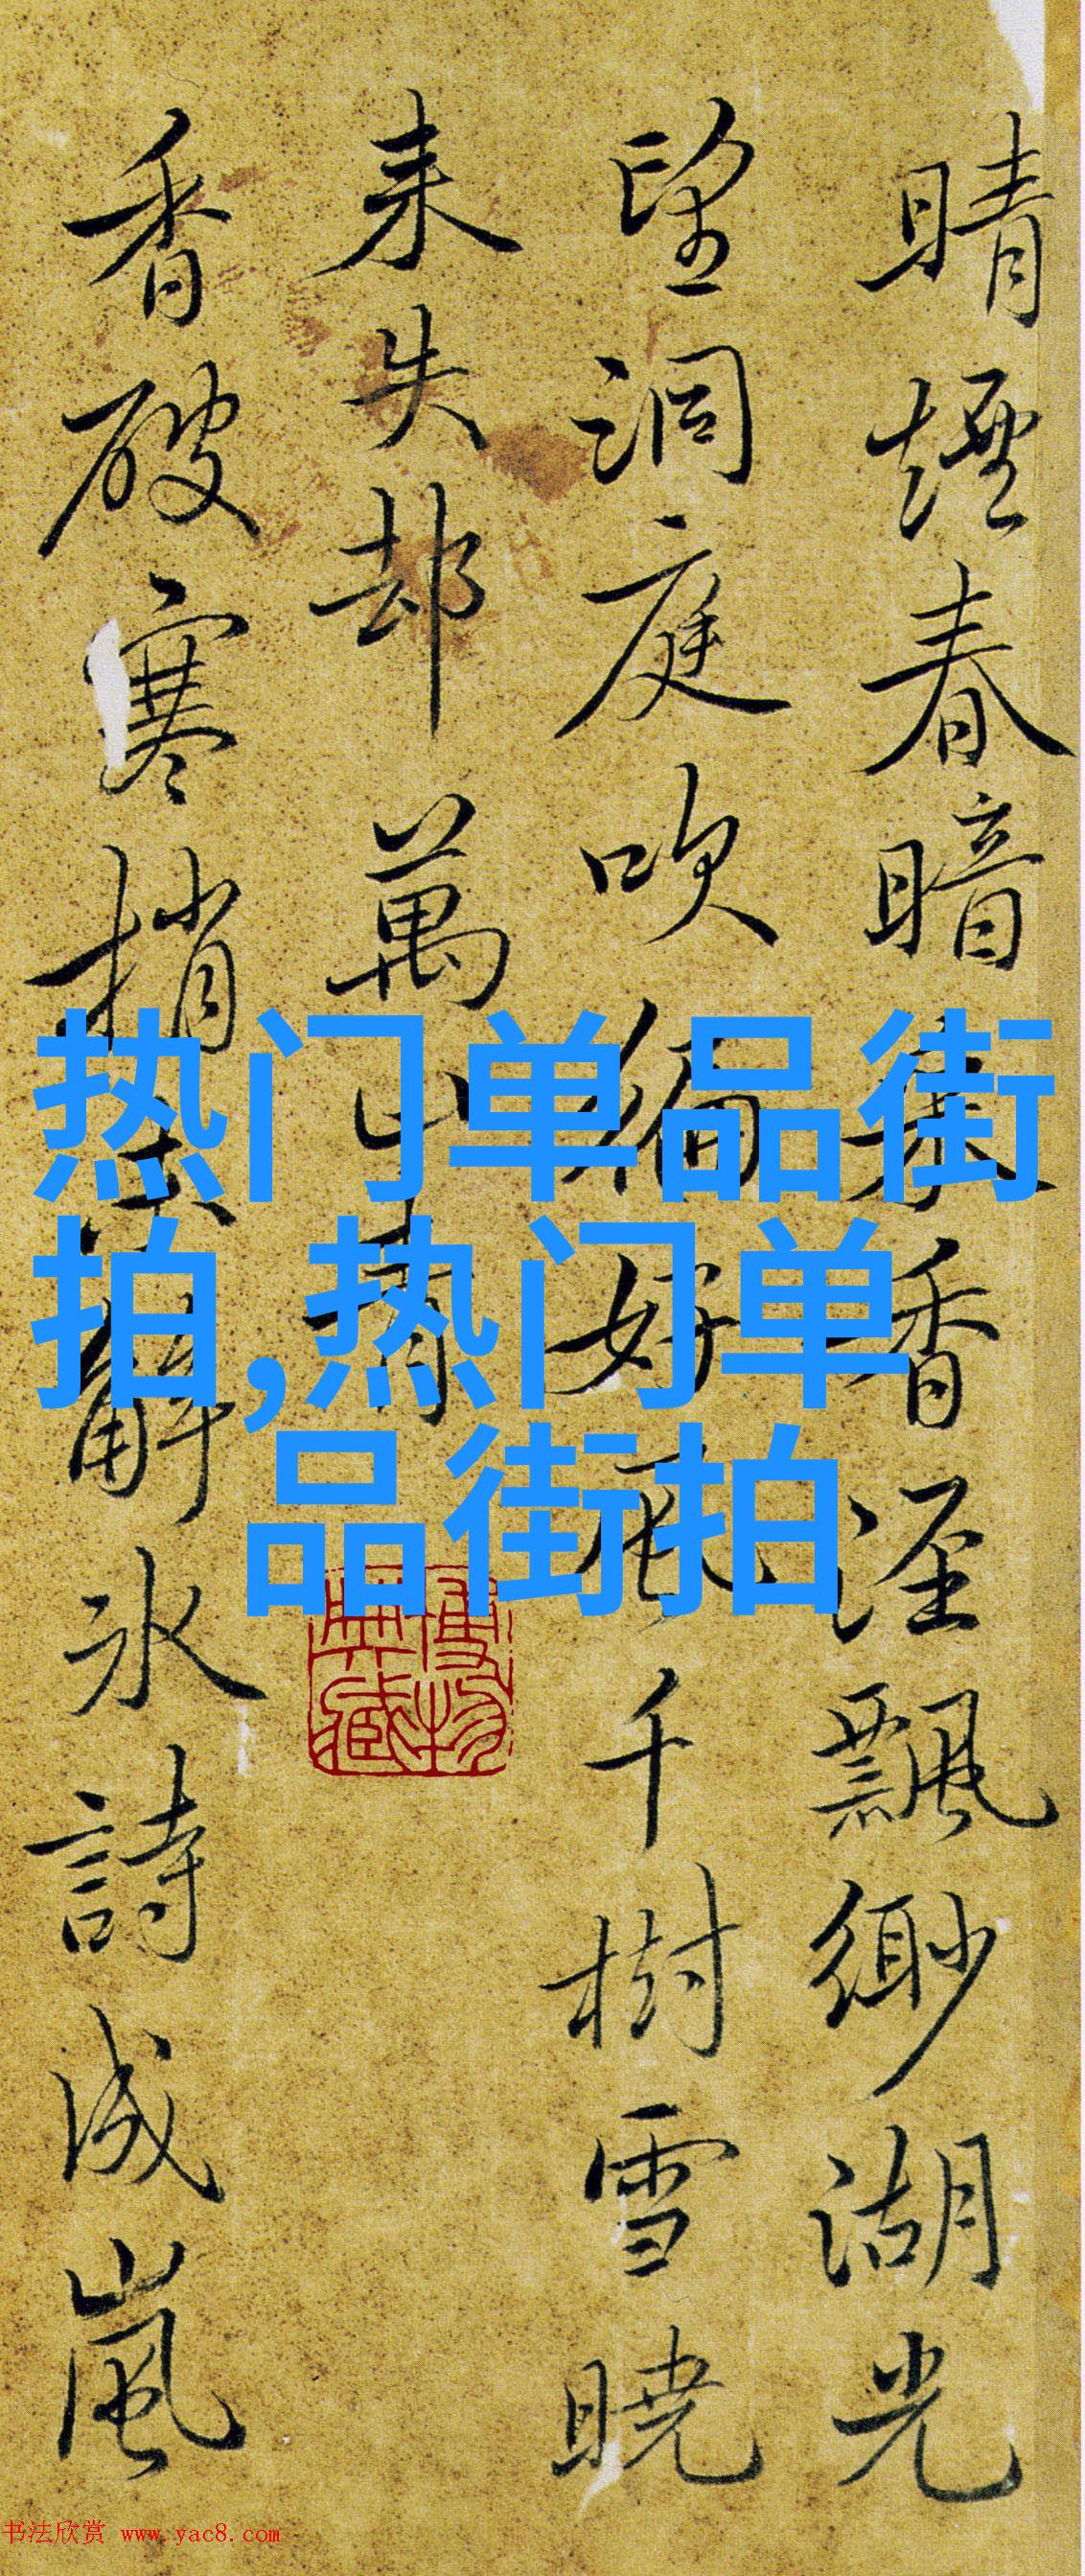 晴煙春暗香溼飄緲湖光
望洞庭吹徧好風千樹雪曉
来失却萬山青
香破寒梢冰詩成嵐
热门单品街
拍,热门单
品街拍
书法欣赏 www.yac8.com